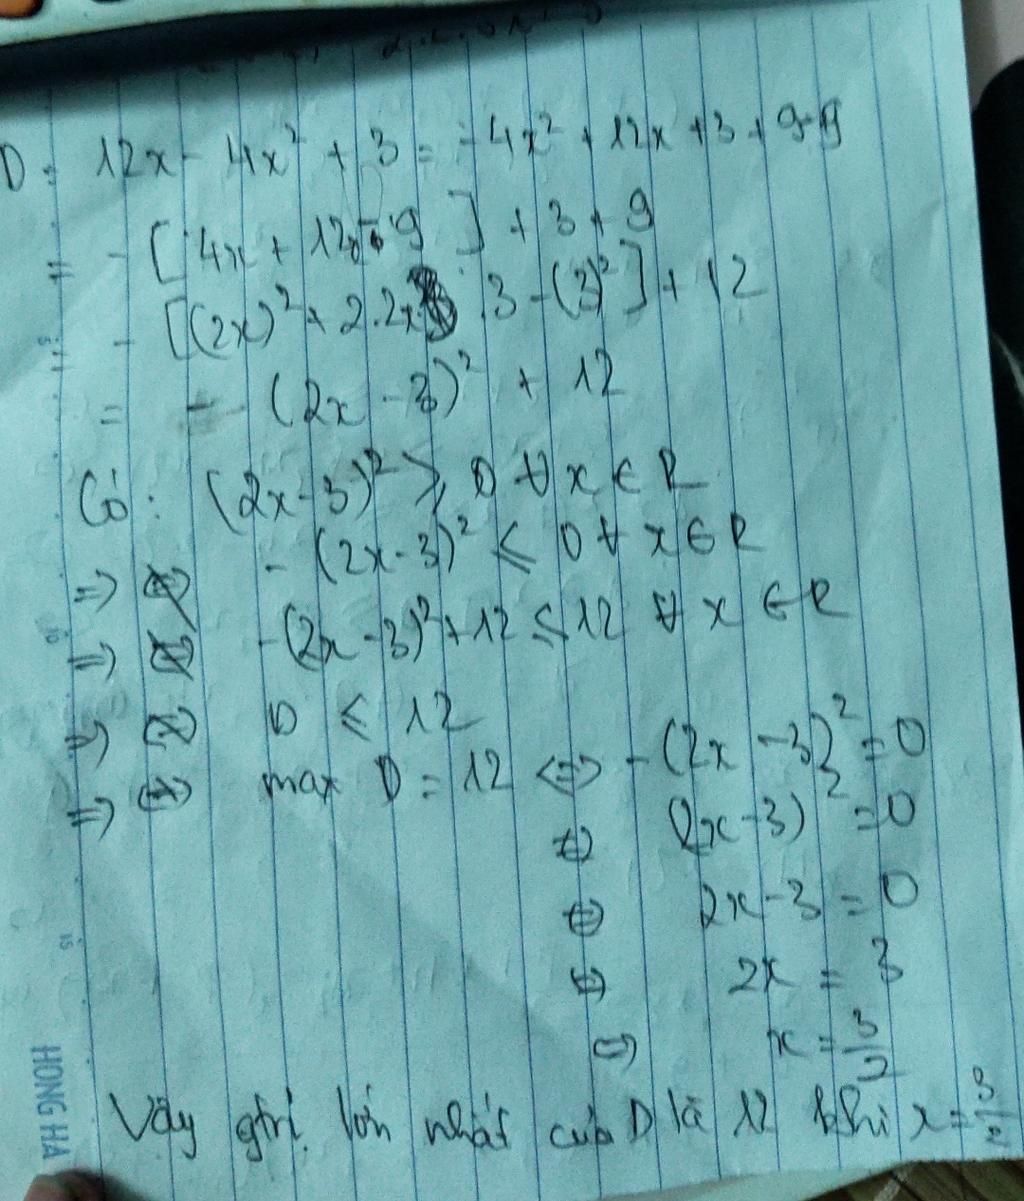 D = 12x - 4x² + 3 = -4x² + 12x + 3 + 9-9
= - [4x + 12x - 9] + 3 + 9
= - [(2x)² + 2.2x.3 - (3)²] + 12
= - (2x - 3)² + 12
Có: (2x-3)² ≥ 0 ∀ x ∈ R
=> - (2x-3)² ≤ 0 ∀ x ∈ R
=> -(2x-3)²+12 ≤ 12 ∀ x ∈ R
=> D ≤ 12
=> max D = 12 <=> - (2x-3)² = 0
<=> (2x-3)² = 0
<=> 2x-3 = 0
<=> 2x = 3
<=> x = 3/2
Vậy gtrị lớn nhất của D là 12 khi x = 3/2
HONG HA
15